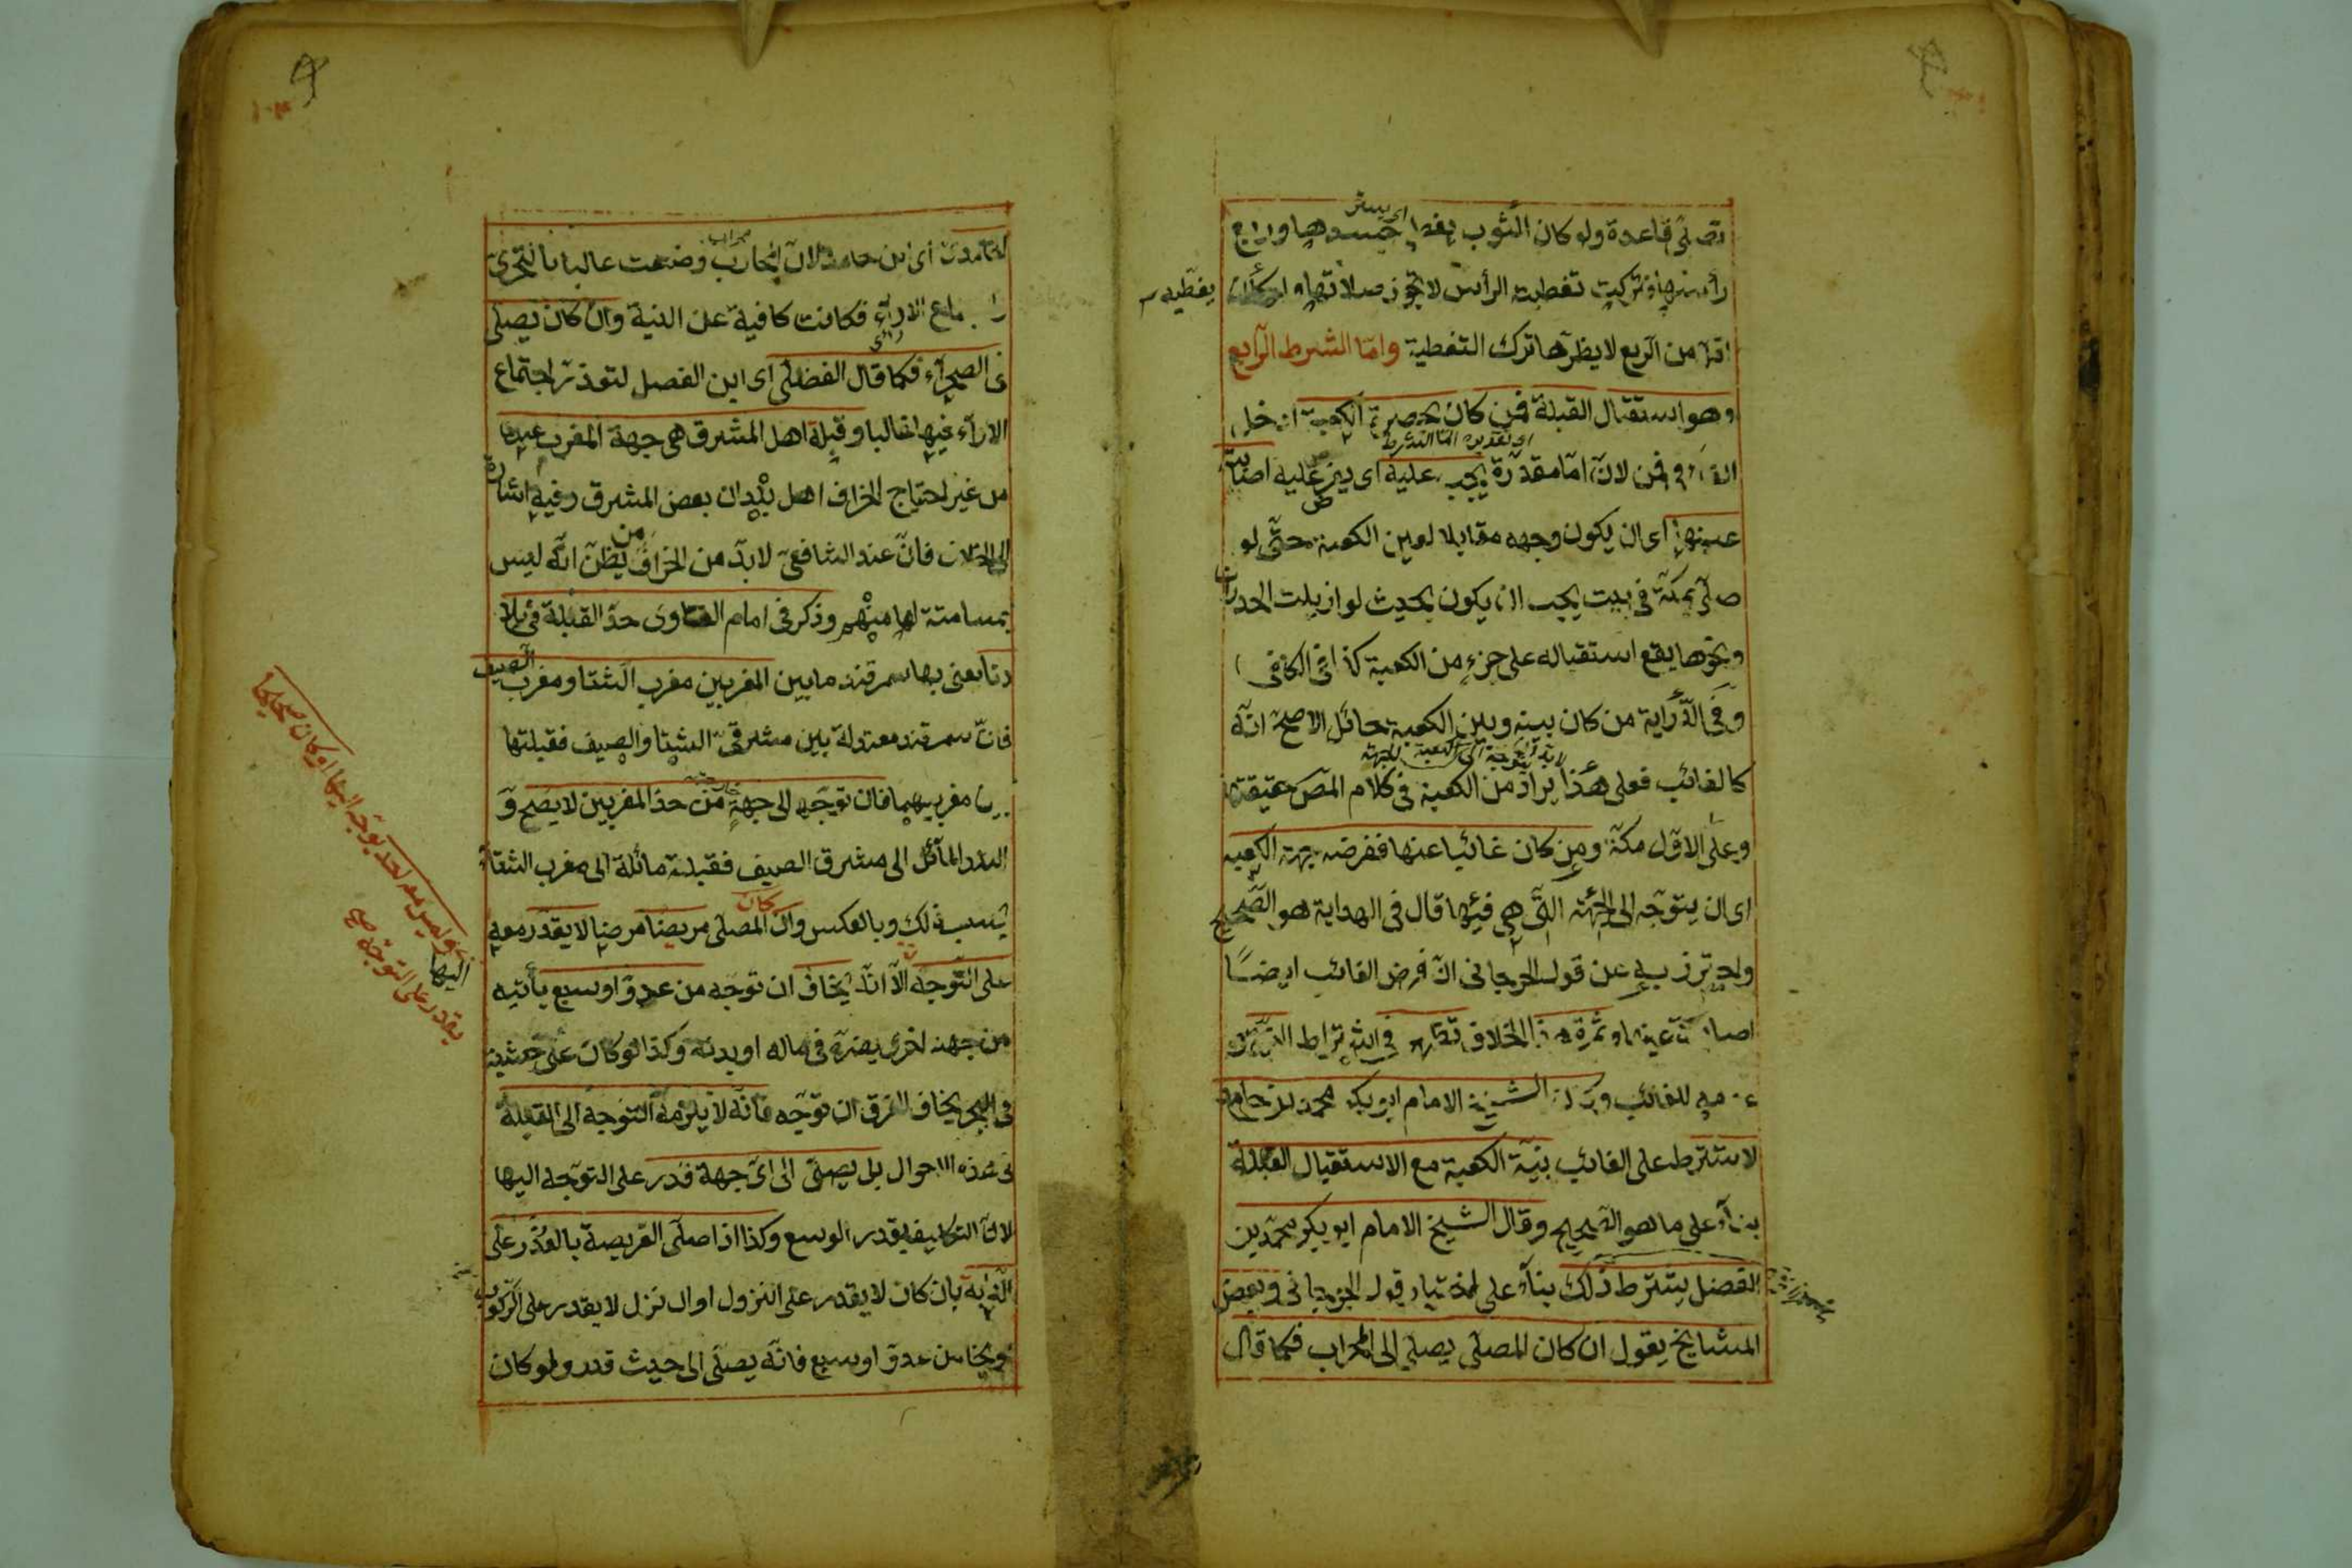 تصلى قاعدة ولو كان الثوب يغطى جسدها وربع
رأسها فتركت تغطية الرأس لا تجوز صلاتها ولو كان
يغطيه
اقل من الربع لا يضرها ترك التغطية واما الشرط الرابع
وهو استقبال القبلة فمن كان بحضرة الكعبة
لان اما مقدرة يجب عليه اى يفرض عليه اصابة
عينها اى ان يكون وجهه مقابلا لعين الكعبة حتى لو
صلى بمكة فى بيت يجب ان يكون بحيث لو ازيلت الجدران
ونحوها يقع استقباله على جزء من الكعبة كذا فى الكافى
وفى الدراية من كان بينه وبين الكعبة حائل الاصح انه
كالغائب فعلى هذا يراد من الكعبة فى كلام المص حقيقتها
وعلى الاول مكة ومن كان غائبا عنها ففرضه جهة الكعبة
اى ان يتوجه الى الجهة التى هى فيها قال فى الهداية هو الصحيح
واحترز به عن قول الجرجانى ان فرض الغائب ايضا
اصابة عينها وثمرة هذا الخلاف تظهر فى اشتراط
للغائب الشيخ الامام ابو بكر محمد بن حامد
لا تشترط على الغائب نية الكعبة مع الاستقبال القبلة
بناء على ما هو الصحيح وقال الشيخ الامام ابو بكر محمد بن
الفضل يشترط ذلك بناء على اختيار قول الجرجانى وبعض
المشايخ يقول ان كان المصلى يصلى الى المحراب فكما قال
الحامدى اى ابن حامد لان المحارب وضعت غالبا بالتحرى
الاراء فكانت كافية عن النية وان كان يصلى
فى الصحراء فكما قال الفضلى اى ابن الفضل لتعذر اجتماع
الاراء فيها غالبا وقبلة اهل المشرق هى جهة المغرب عندنا
من غير احتياج انحراف اهل بلدان بعض المشرق وفيه اشارة
الى الخلاف فان عند الشافعى لا بد من انحراف من يظن انه ليس
بمسامتة لها منهم وذكر فى امام الفتاوى حد القبلة فى بلا
دنا يعنى بها سمرقند ما بين المغربين مغرب الشتا ومغرب الصيف
فان سمرقند معتدلة بين مشرقى الشتا والصيف فقبلتها
بين مغربيهما فان توجه الى جهة من حذ المغربين لا يصح و
البلد المائل الى مشرق الصيف فقبلته مائلة الى مغرب الشتاء
بسبب ذلك وبالعكس وان كان المصلى مريضا مرضا لا يقدر معه
على التوجه الا انه يخاف ان توجه من عدو او سبع يأتيه
من جهة اخرى يضره فى ماله او بدنه وكذا لو كان على خشبة
فى البحر يخاف الغرق ان توجه فانه لا يلزمه التوجه الى القبلة
فى هذه الاحوال بل يصلى الى اى جهة قدر على التوجه اليها
لان التكليف بقدر الوسع وكذا اذا صلى الفريضة بالعذر على
الدابة بان كان لا يقدر على النزول او ان نزل لا يقدر على الركوب
من عدو او سبع فانه يصلى الى حيث قدر ولو كان
وليس معه احد يوجه اليها او كان صحيحا
اليها
يقدر على التوجه صح